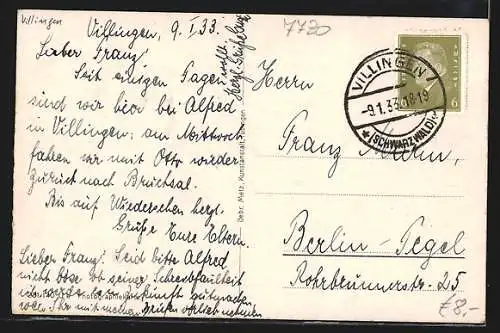 Villingen
Villingen, 9. I. 33.
7730
Lieber Franz!
Seit einigen Tagen
sind wir hier bei Alfred
in Villingen; am Mittwoch
fahren wir mit Otto wieder
zurück nach Bruchsal.
Bis auf Wiedersehen herzl.
Grüße Eure Eltern.
Lieber Franz! Seid bitte Alfred
nicht böse ob seiner Schreibfaulheit
ich werde
Ihr mit meinen Grüßen vorlieb nehmen
Gebr. Metz, Kunstanstalt, Tübingen
VILLINGEN
-9.1.33.18-19
★(SCHWARZWALD)★
6
Herrn
Franz
Berlin-Tegel
Rohrbrunnerstr. 25
€8,-